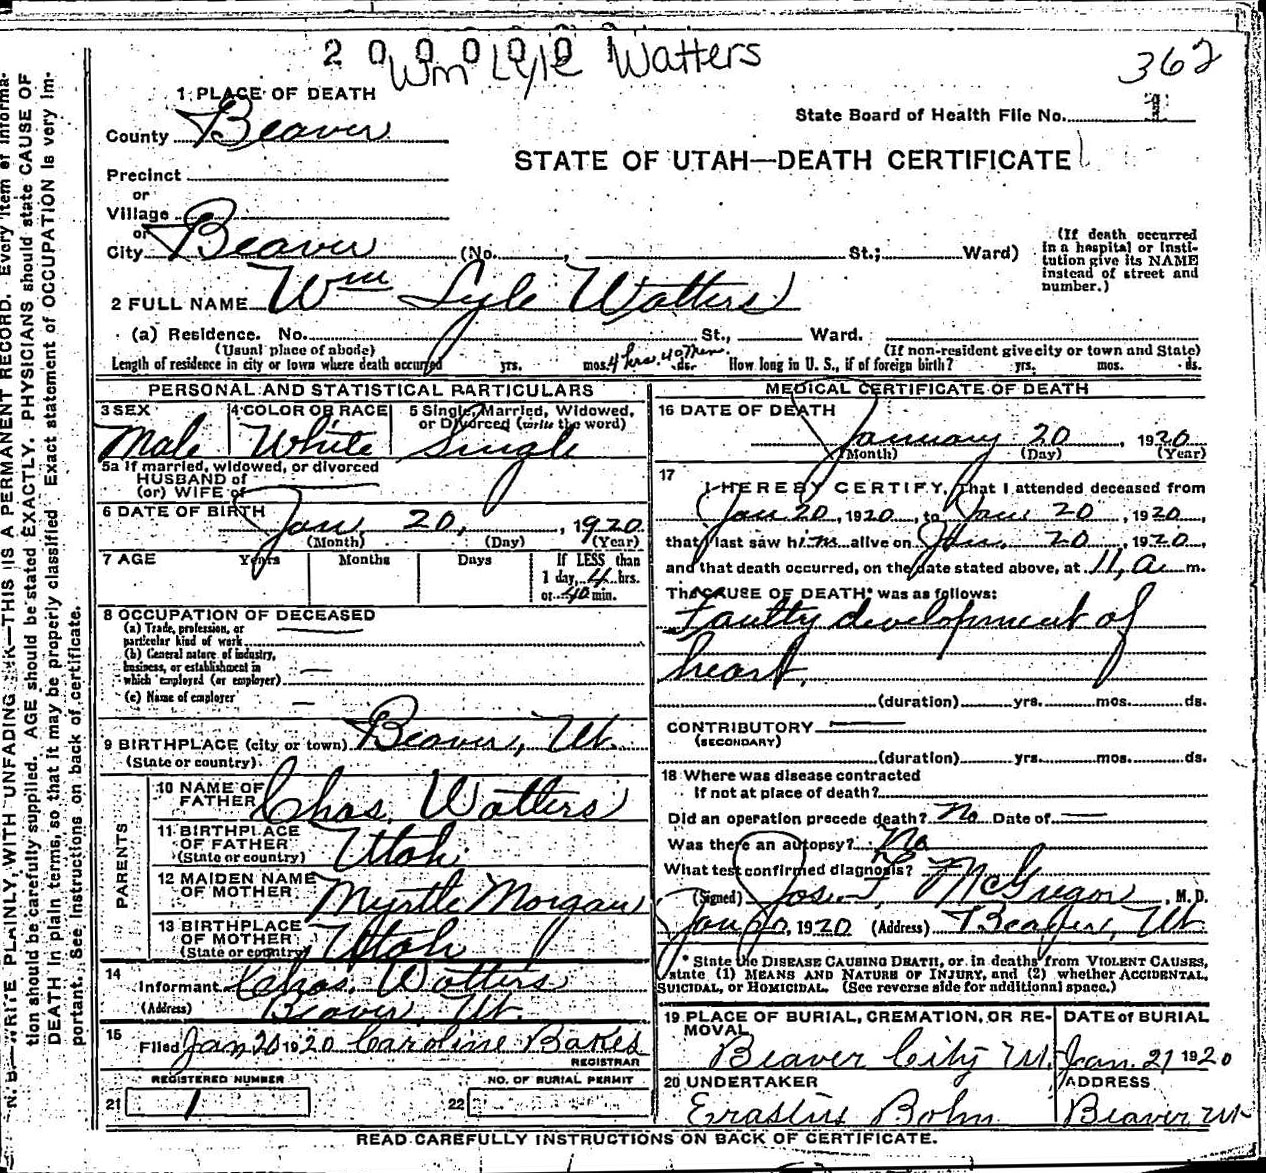 2 0 0 0 0 0 1
Wm Lyle Watters
362
1 PLACE OF DEATH
County Beaver
State Board of Health File No. 1
STATE OF UTAH—DEATH CERTIFICATE
Precinct
or
Village
or
City Beaver (No. , St.; Ward)
(If death occurred
in a hospital or insti-
tution give its NAME
instead of street and
number.)
2 FULL NAME Wm Lyle Watters
(a) Residence. No. St., Ward.
(Usual place of abode) (If non-resident give city or town and State)
Length of residence in city or town where death occurred yrs. mos. 4 hrs. 40 Min. ds. How long in U. S., if of foreign birth? yrs. mos. ds.
PERSONAL AND STATISTICAL PARTICULARS
3 SEX 4 COLOR OR RACE 5 Single, Married, Widowed,
or Divorced (write the word)
Male White Single
5a If married, widowed, or divorced
HUSBAND of
(or) WIFE of
6 DATE OF BIRTH Jan 20, , 1920
(Month) (Day) (Year)
7 AGE Years Months Days If LESS than
1 day, 4 hrs.
or 40 min.
8 OCCUPATION OF DECEASED
(a) Trade, profession, or
particular kind of work
(b) General nature of industry,
business, or establishment in
which employed (or employer)
(c) Name of employer
9 BIRTHPLACE (city or town) Beaver, Ut.
(State or country)
PARENTS
10 NAME OF
FATHER Chas. Watters
11 BIRTHPLACE
OF FATHER Utah.
(State or country)
12 MAIDEN NAME
OF MOTHER Myrtle Morgan
13 BIRTHPLACE
OF MOTHER Utah
(State or country)
14
Informant Chas. Watters
(Address) Beaver, Ut.
15
Filed Jan 20 1920 Caroline Bakes
REGISTRAR
REGISTERED NUMBER NO. OF BURIAL PERMIT
21 1 22
MEDICAL CERTIFICATE OF DEATH
16 DATE OF DEATH
January 20 , 1920
(Month) (Day) (Year)
17
I HEREBY CERTIFY, That I attended deceased from
Jan 20 , 1920 , to Jan 20 , 1920,
that I last saw him alive on Jan. 20 , 1920,
and that death occurred, on the date stated above, at 11, a m.
The CAUSE OF DEATH* was as follows:
Faulty development of
heart.
(duration) yrs. mos. ds.
CONTRIBUTORY
(SECONDARY)
(duration) yrs. mos. ds.
18 Where was disease contracted
If not at place of death?
Did an operation precede death? No Date of
Was there an autopsy? No
What test confirmed diagnosis?
(Signed) Jos. F. McGregor , M. D.
Jan 20, 1920 (Address) Beaver, Ut
* State the DISEASE CAUSING DEATH, or in deaths from VIOLENT CAUSES,
state (1) MEANS AND NATURE OF INJURY, and (2) whether ACCIDENTAL,
SUICIDAL, or HOMICIDAL. (See reverse side for additional space.)
19 PLACE OF BURIAL, CREMATION, OR RE-
MOVAL
DATE of BURIAL
Beaver City Ut. Jan. 21 1920
20 UNDERTAKER ADDRESS
Erastus Bohn Beaver Ut
READ CAREFULLY INSTRUCTIONS ON BACK OF CERTIFICATE.
N. B.—WRITE PLAINLY, WITH UNFADING INK—THIS IS A PERMANENT RECORD. Every item of informa-
tion should be carefully supplied. AGE should be stated EXACTLY. PHYSICIANS should state CAUSE OF
DEATH in plain terms, so that it may be properly classified. Exact statement of OCCUPATION is very im-
portant. See Instructions on back of certificate.